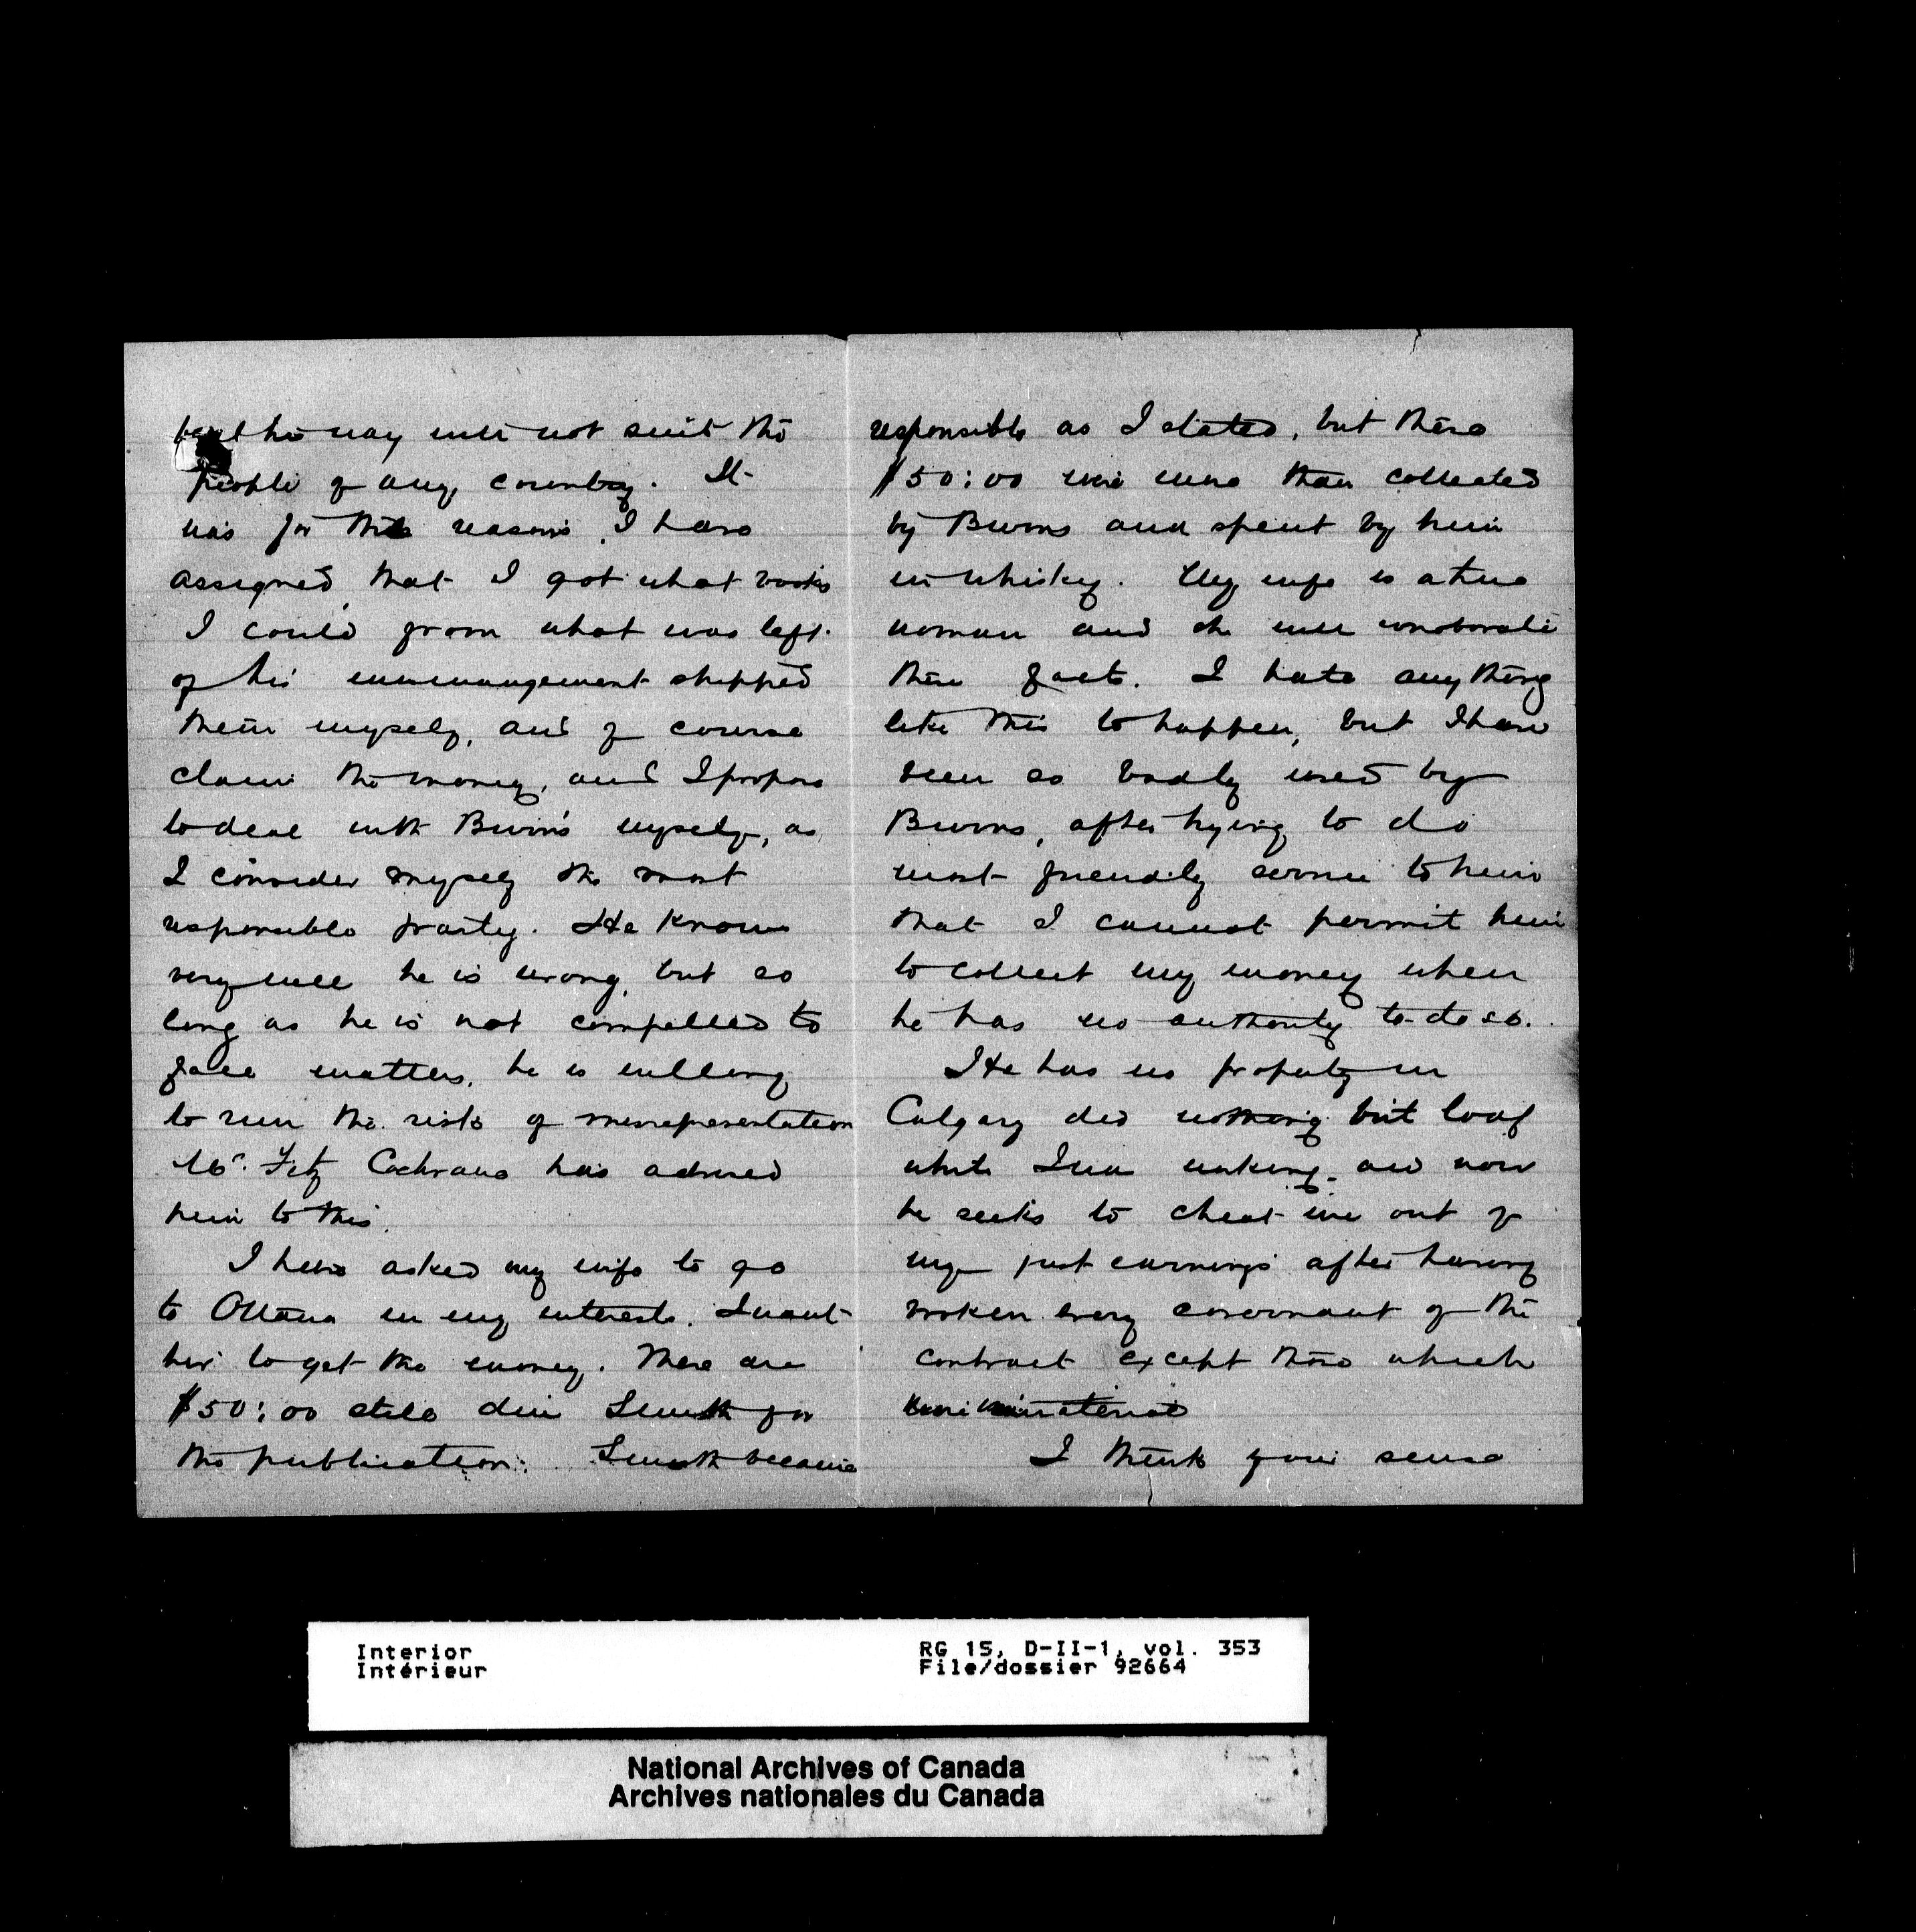 but his way will not suit the
people of any country. It
was for the reasons, I have
assigned, that I got what books
I could from what was left
of his mismanagement shipped
them myself, and of course
claim the money, and I propose
to deal with Burns myself, as
I consider myself the most
responsible party. He knows
very well he is wrong, but so
long as he is not compelled to
face matters, he is willing
to run the risk of misrepresentation
Mr. Fitz Cochrane has advised
him to this.
I have asked my wife to go
to Ottawa in my interests. I want
her to get the money. There are
$50:00 still due Smith for
the publication. Smith became
responsible as I stated, but these
$50:00 were more than collected
by Burns and spent by him
in whiskey. My wife is a true
woman and she will corroborate
these facts. I hate anything
like this to happen, but I have
been so badly used by
Burns, after trying to do
most friendly service to him
that I cannot permit him
to collect my money when
he has no authority to do so.
He has no property in
Calgary did nothing but loaf
while I was working and now
he seeks to cheat me out of
my just earnings after having
broken every covenant of the
contract except those which
were immaterial
I think your sense
Interior
Intérieur
RG 15, D-II-1, vol. 353
File/dossier 92664
National Archives of Canada
Archives nationales du Canada